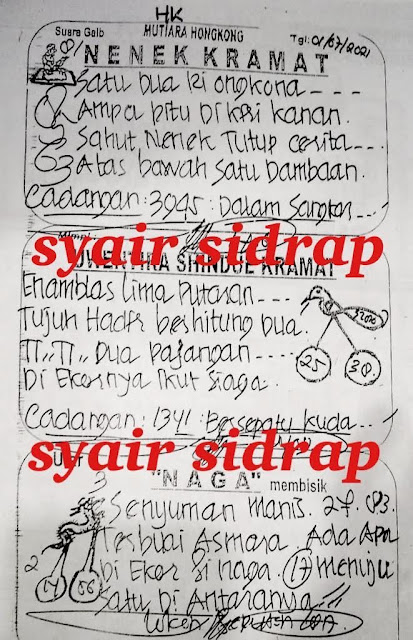 HK
Suara Gaib MUTIARA HONGKONG Tgl: 01/07/2021
NENEK KRAMAT
Satu Dua Ri Ongkona - - - -
Ampa pitu Di Kiri Kanan.
Sahut, Nenek Tutup Cerita - - - .
Atas bawah Satu Dambaan.
Cadangan: 3945: Dalam Sangkar - - - !
syair sidrap
SHINDUE KRAMAT
Enambelas Lima Putaran - - - .
Tujuh Hadir berhitung Dua.
Ti,, Ti,, Dua Pajangan - - - -
Di Ekornya Ikut Siaga.
25
38
Cadangan: 1341: Bersepatu Kuda - - !
syair sidrap
3
"NAGA" membisik
Senyuman Manis. 27. 83.
Terbuai Asmara. Ada Apa
2
Di Ekor Si Naga. 17 meniru
Satu Di Antaranya